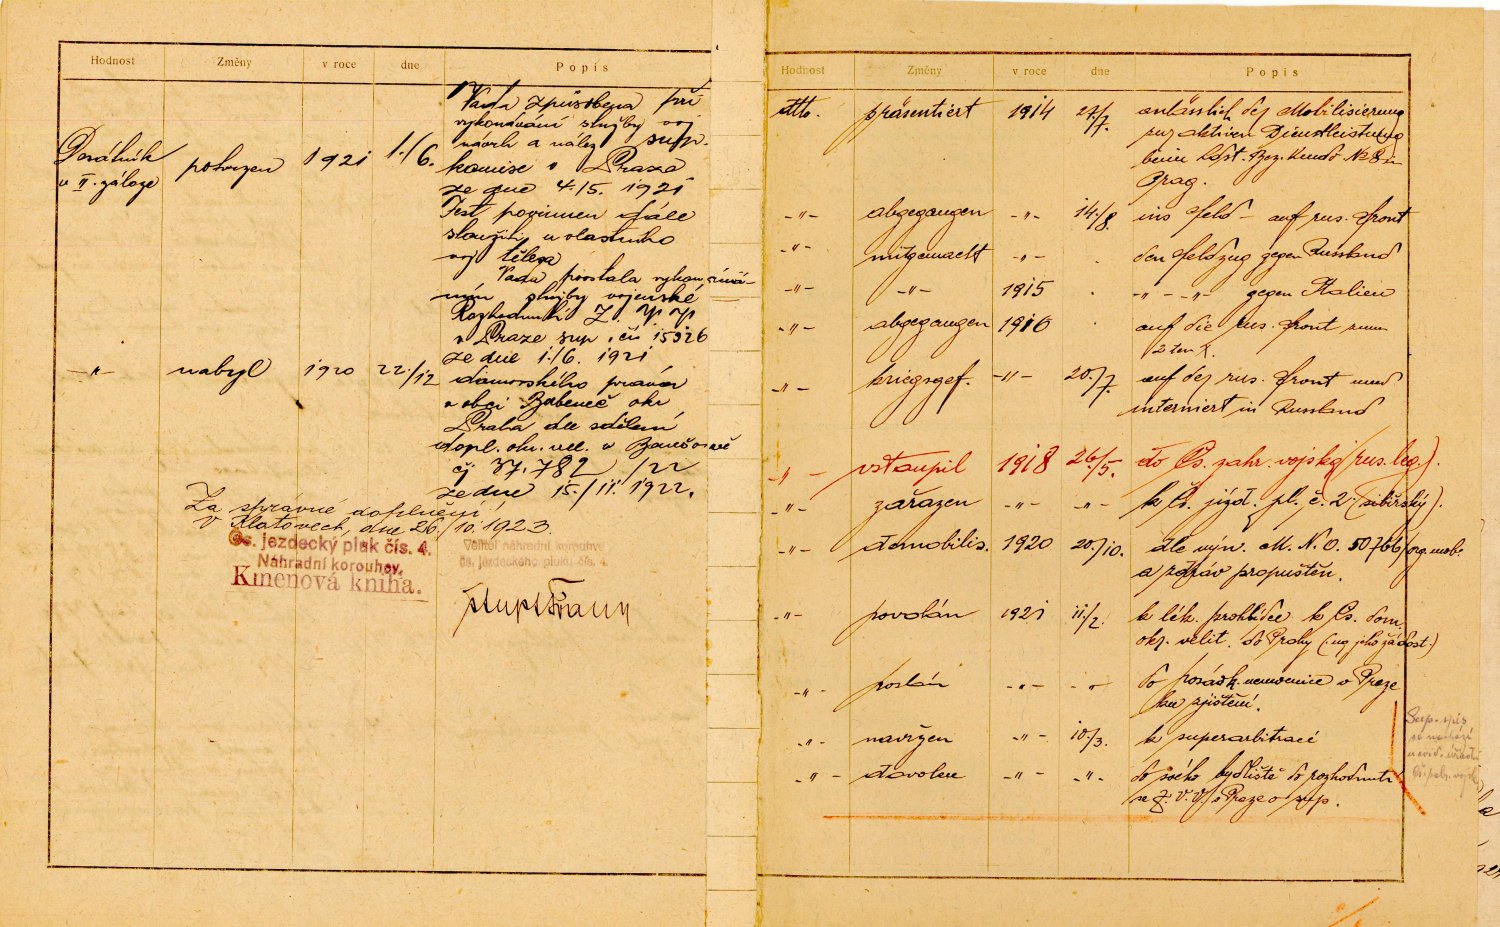 Hodnost Změny v roce dne Popis
Vada způsobena při
vykonávání služby voj
návrh a nález sup.
Desátník
v II. záloze potvrzen 1921 1./6. komise v Praze
ze dne 4./5. 1921
Jest povinnen dále
sloužiti u vlastního
voj tělesa
Vada povstala vykonáváním služby vojenské
Rozhodnutí Z. V. V.
v Praze sup. čís 15926
ze dne 1./6. 1921
-"- nabyl 1920 22./12 domovského práva
v obci Bubeneč okr
Praha dle sdělení
dopl. okr. vel. v Benešově
čj 37.782 /22
ze dne 15./11. 1922.
Za správné doplnění:
V Klatovech, dne 26./10. 1923
Čs. jezdecký pluk čís. 4.
Náhradní korouhev.
Kmenová kniha.
Velitel náhradní korouhve
čs. jezdeckého pluku čís. 4.
Hodnost Změny v roce dne Popis
dtto. präsentiert 1914 27./7. anlässlich der Mobilisierung
zur aktiven Dienstleistung
beim Ldst. Bez. Kmdo № 8 in
Prag.
-"- abgegangen -"- 14./8. ins Feld - auf rus. Front
-"- mitgemacht -"- . den Feldzug gegen Russland
-"- -"- 1915 . -"- -"- gegen Italien
-"- abgegangen 1916 . auf die rus. Front zum
2ten X.
-"- kriegsgef. -"- 20./7. auf der rus. Front und
interniert in Russland
-"- vstoupil 1918 26./5. do Čs. zahr. vojska (rus. leg.).
-"- zařazen -"- -"- k čs. jízd. pl. č. 2. (sibiřský).
-"- demobilis. 1920 20./10. dle výn. M. N. O. 50766/org. mob.
a zdráv propuštěn.
-"- povolán 1921 11./2. k lék. prohlídce k Čs. dom.
okr. velit. do Prahy (na jeho žádost.)
-"- poslán -"- -"- do posádk. nemocnice v Praze
ku zjištění.
-"- navržen -"- 10./3. k superarbitraci
-"- dovolen -"- -"- do svého bydliště do rozhodnutí
ze Z. V. V. v Praze o sup.
Sup. spis
se nachází